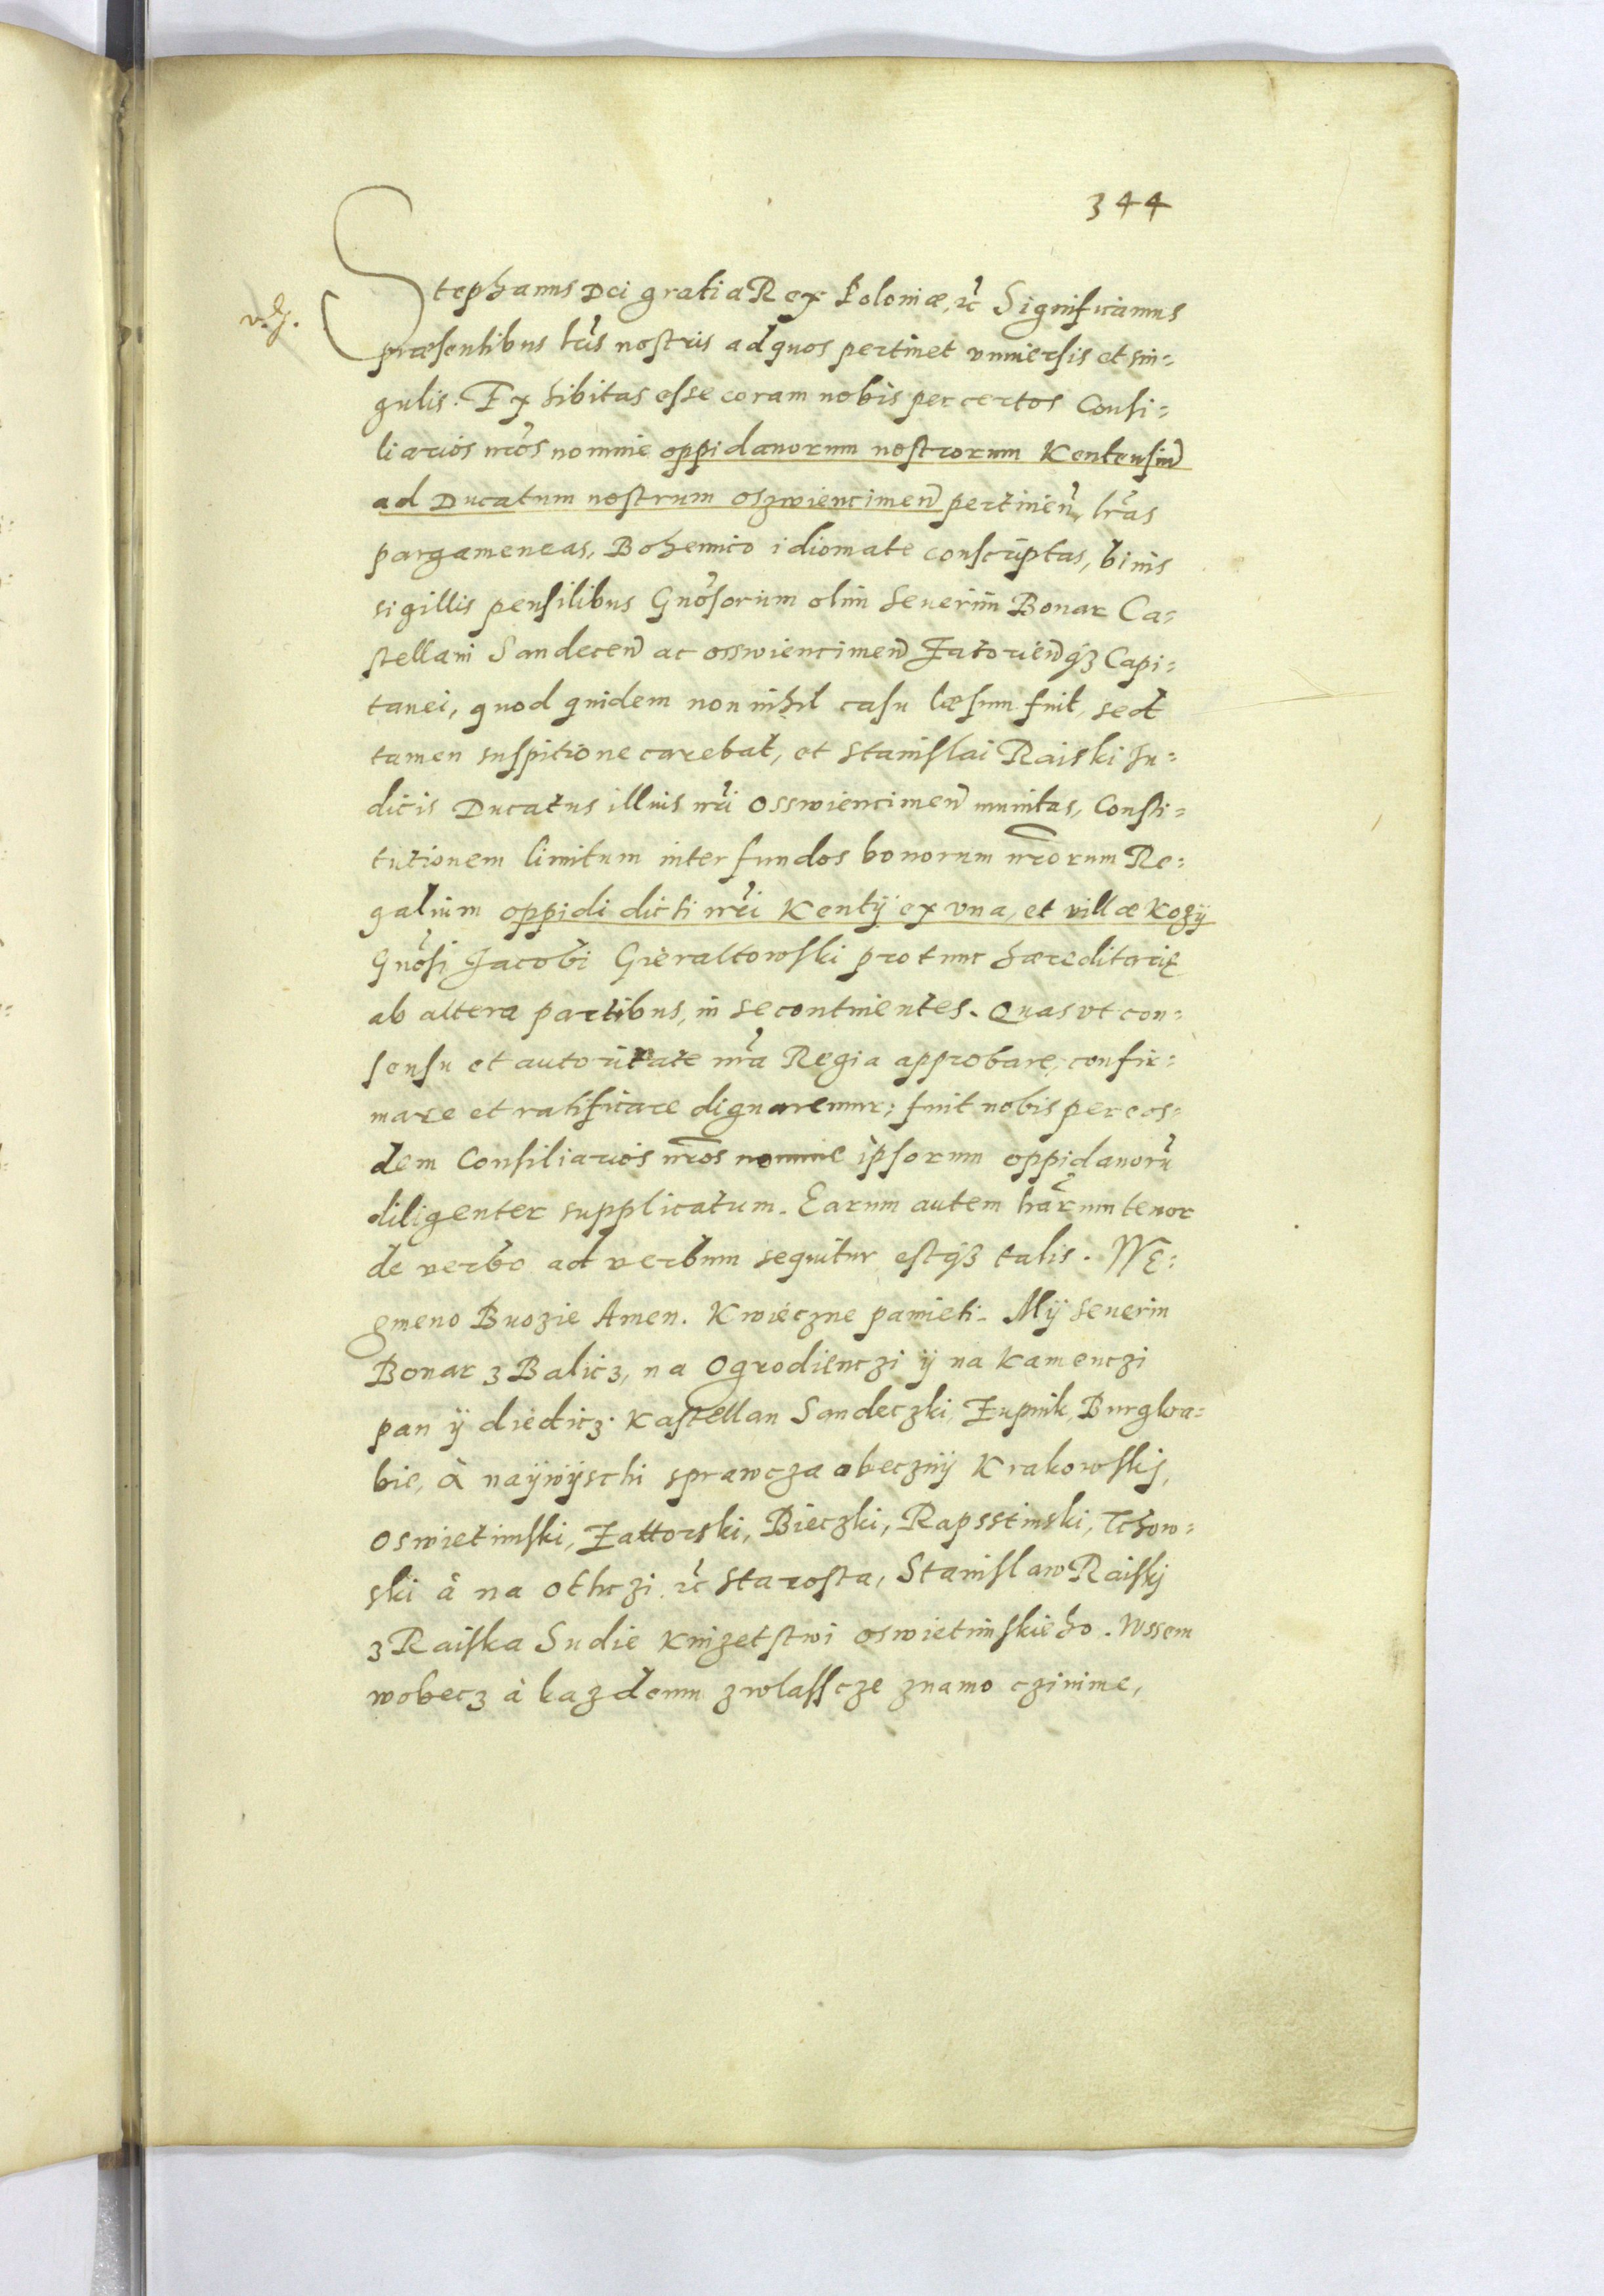 344
Stephanus Dei gratia Rex Poloniæ, ꝛc̃ Significamus
præsentibus lr̃is nostris ad quos pertinet vniuersis et sin=
gulis. Exhibitas esse coram nobis per certos Consi=
liarios nr̃os nomine oppidanorum nostrorum Kentensiũ
ad Ducatum nostrum oszwiencimeñ pertineñ, lr̃as
pargameneas, Bohemico idiomate conscriptas, binis
sigillis pensilibus Gnõsorum olim Seuerini Bonar Ca=
stellani Sandeceñ ac osswiencimeñ Zatorieñqꜣ Capi=
tanei, quod quidem nonnihil casu læsum fuit, sed
tamen suspitione carebat, et Stanislai Raiski Ju=
dicis Ducatus illius nr̃i Osswiencimeñ munitas, Consti=
tutionem limitum inter fundos bonorum nr̃orum Re=
galium oppidi dicti nr̃i Kenty ex vna, et villæ Kozy
Gnõsi Jacobi Gieraltowski pro tunc hæreditarię
ab altera partibus, in se continentes. Quas vt con=
sensu et autoritate nr̃a Regia approbare, confir=
mare et ratificare dignaremur; fuit nobis per eos=
dem Consiliarios nr̃os nomine ipsorum oppidanorũ
diligenter supplicatum. Earum autem lr̃arum tenor
de verbo ad verbum sequitur estqꜣ talis. We:
gmeno Buozie Amen. Kwieczne pamieti. My Seuerin
Bonar z Balicz, na Ogrodienczi ÿ na Kamenczi
pan ÿ diedicz. Kastellan Sandeczki, Zupnik, Burgkra=
bie, à naÿwÿschi sprawcza obecznÿ Krakowskj,
Oswietimski, Zattorski, Bieczki, Rapsstinski, Tchow=
ski à na Othczi ꝛc̃ Starosta, Stanislaw Raiskj
z Raiska Sudie Knizetstwi oswietimskieho. Wssem
wobecz à kazdemu zwlasscze znamo czinime,